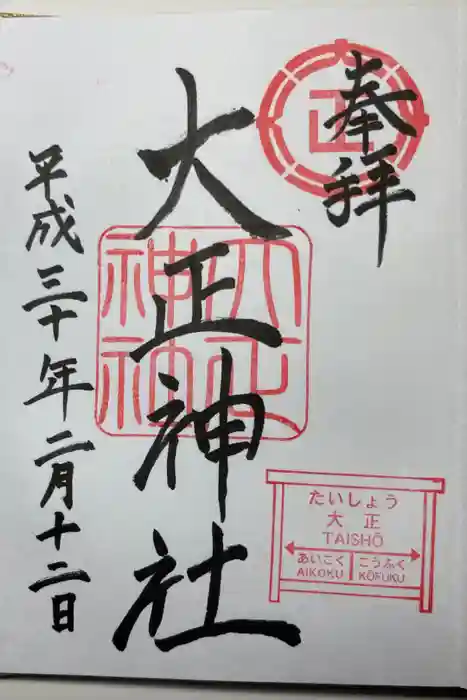 奉拝
正
大正神社
大正神社
平成三十年二月十二日
たいしょう
大正
TAISHŌ
あいこく こうふく
AIKOKU KŌFUKU